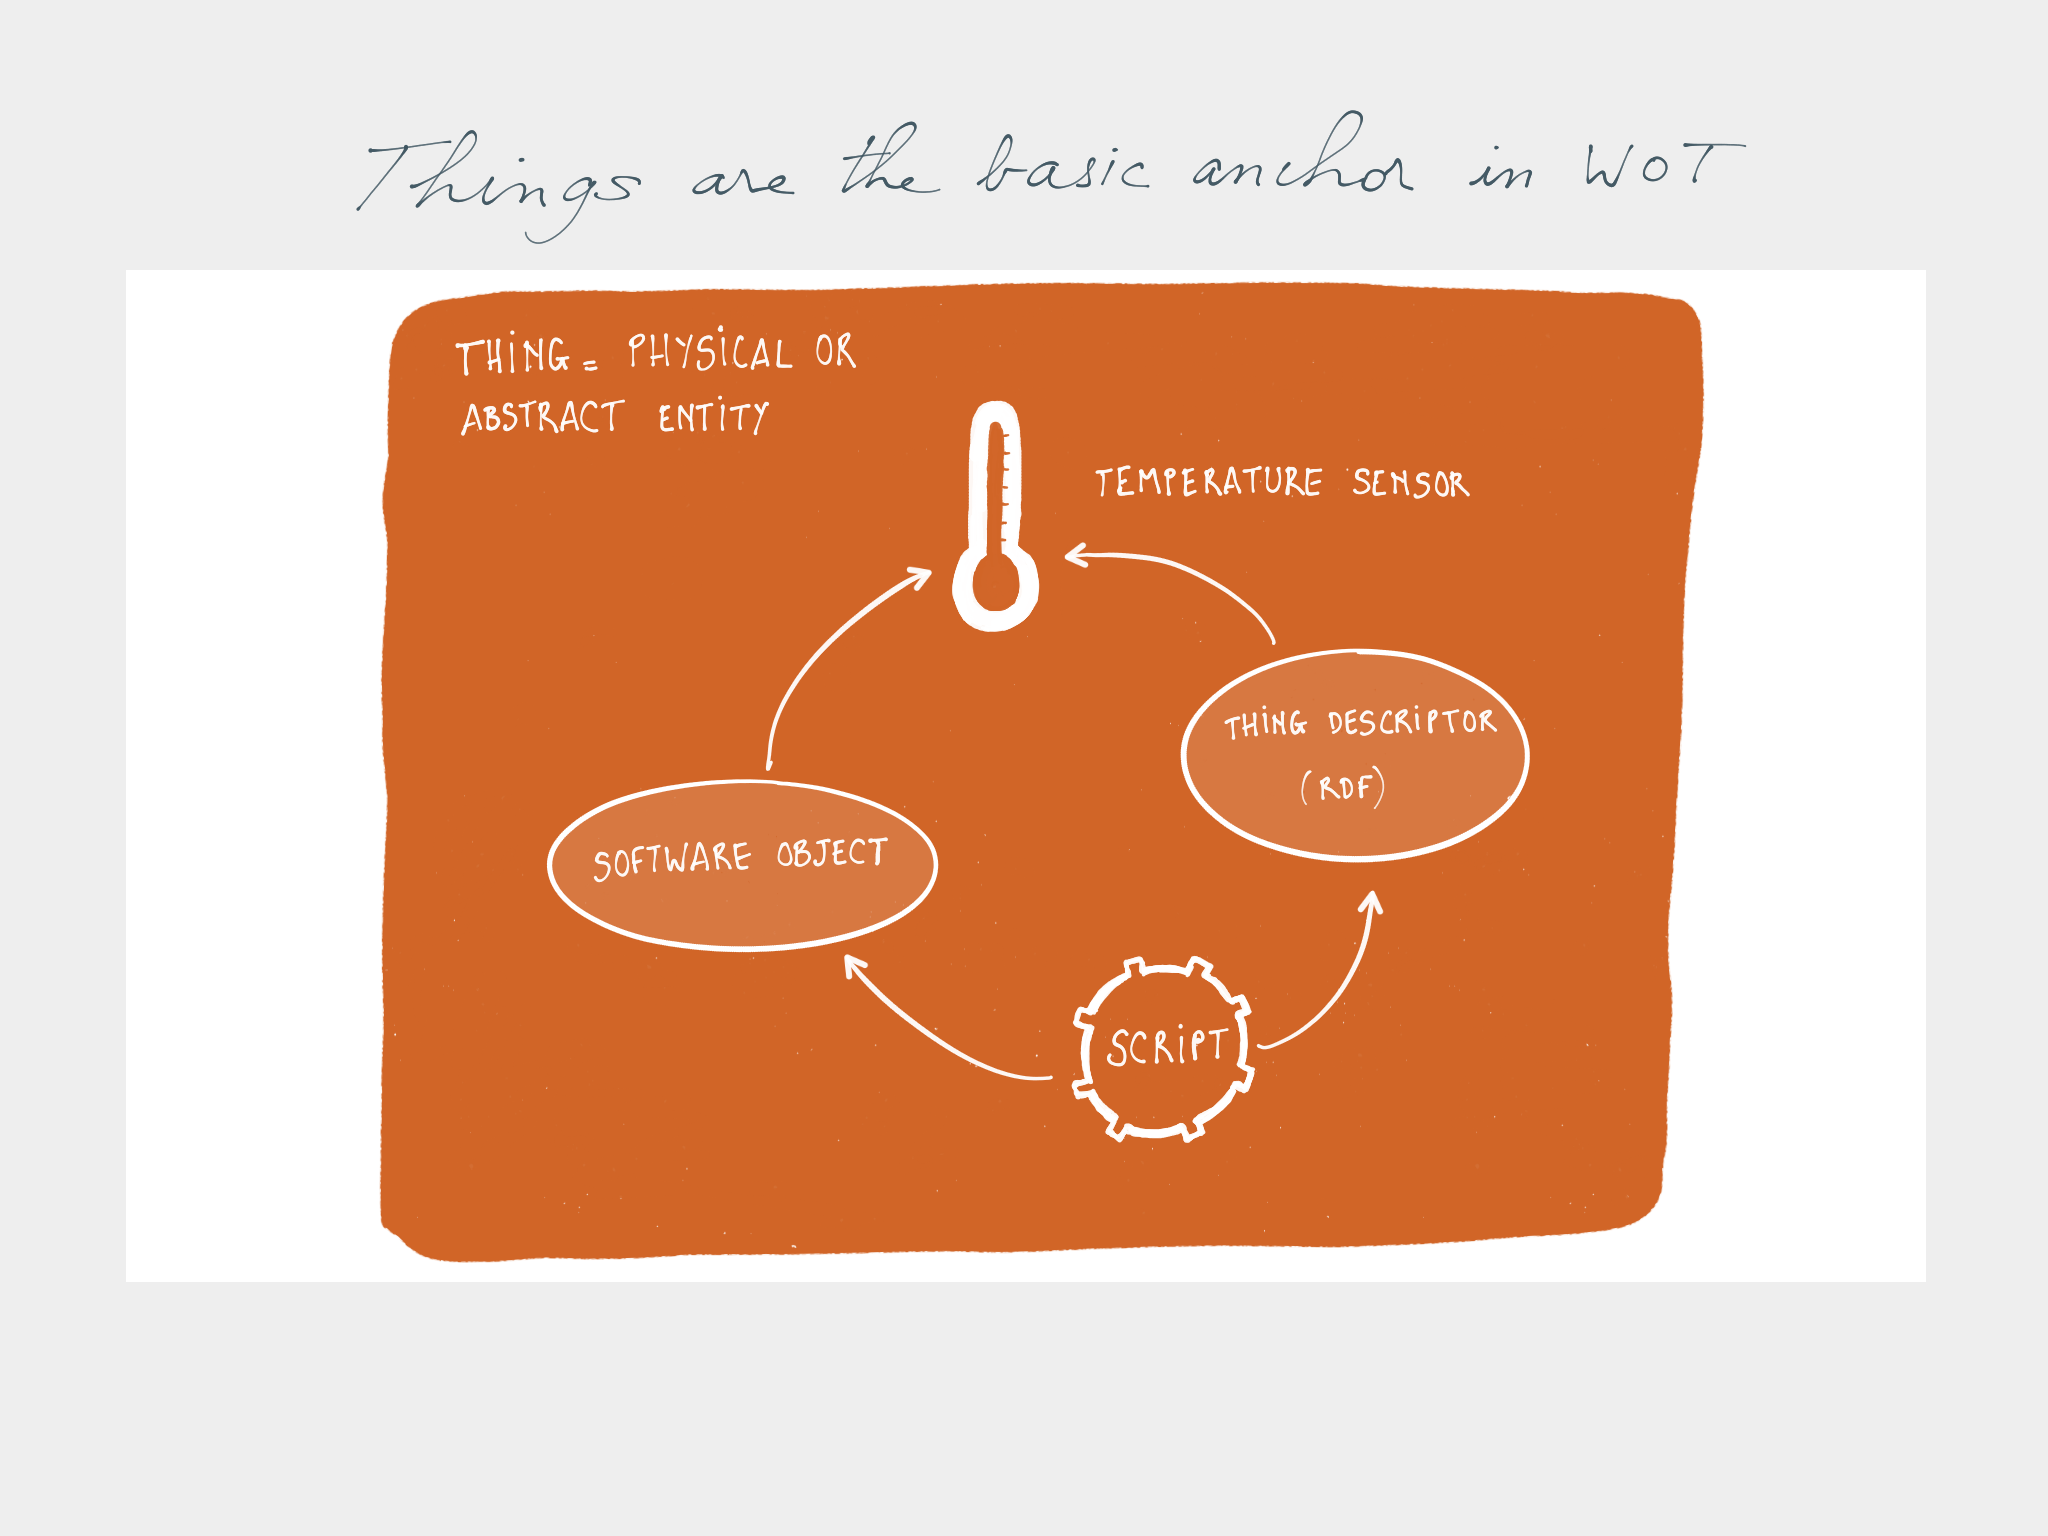 Things are the basic anchor in WOT
THiNG = PHYSiCAL OR
ABSTRACT ENTiTY
TEMPERATURE SENSOR
THiNG DESCRiPTOR
(RDF)
SOFTWARE OBJECT
SCRiPT